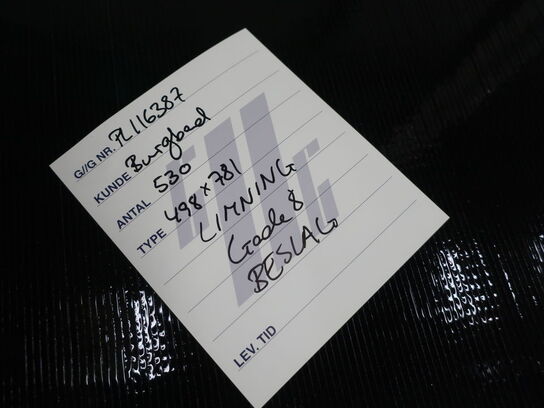 G//G NR. PL116387
KUNDE Burgbad
ANTAL 530
TYPE 498 x 781
LIMNING
Gade 8
BESLAG
LEV. TID